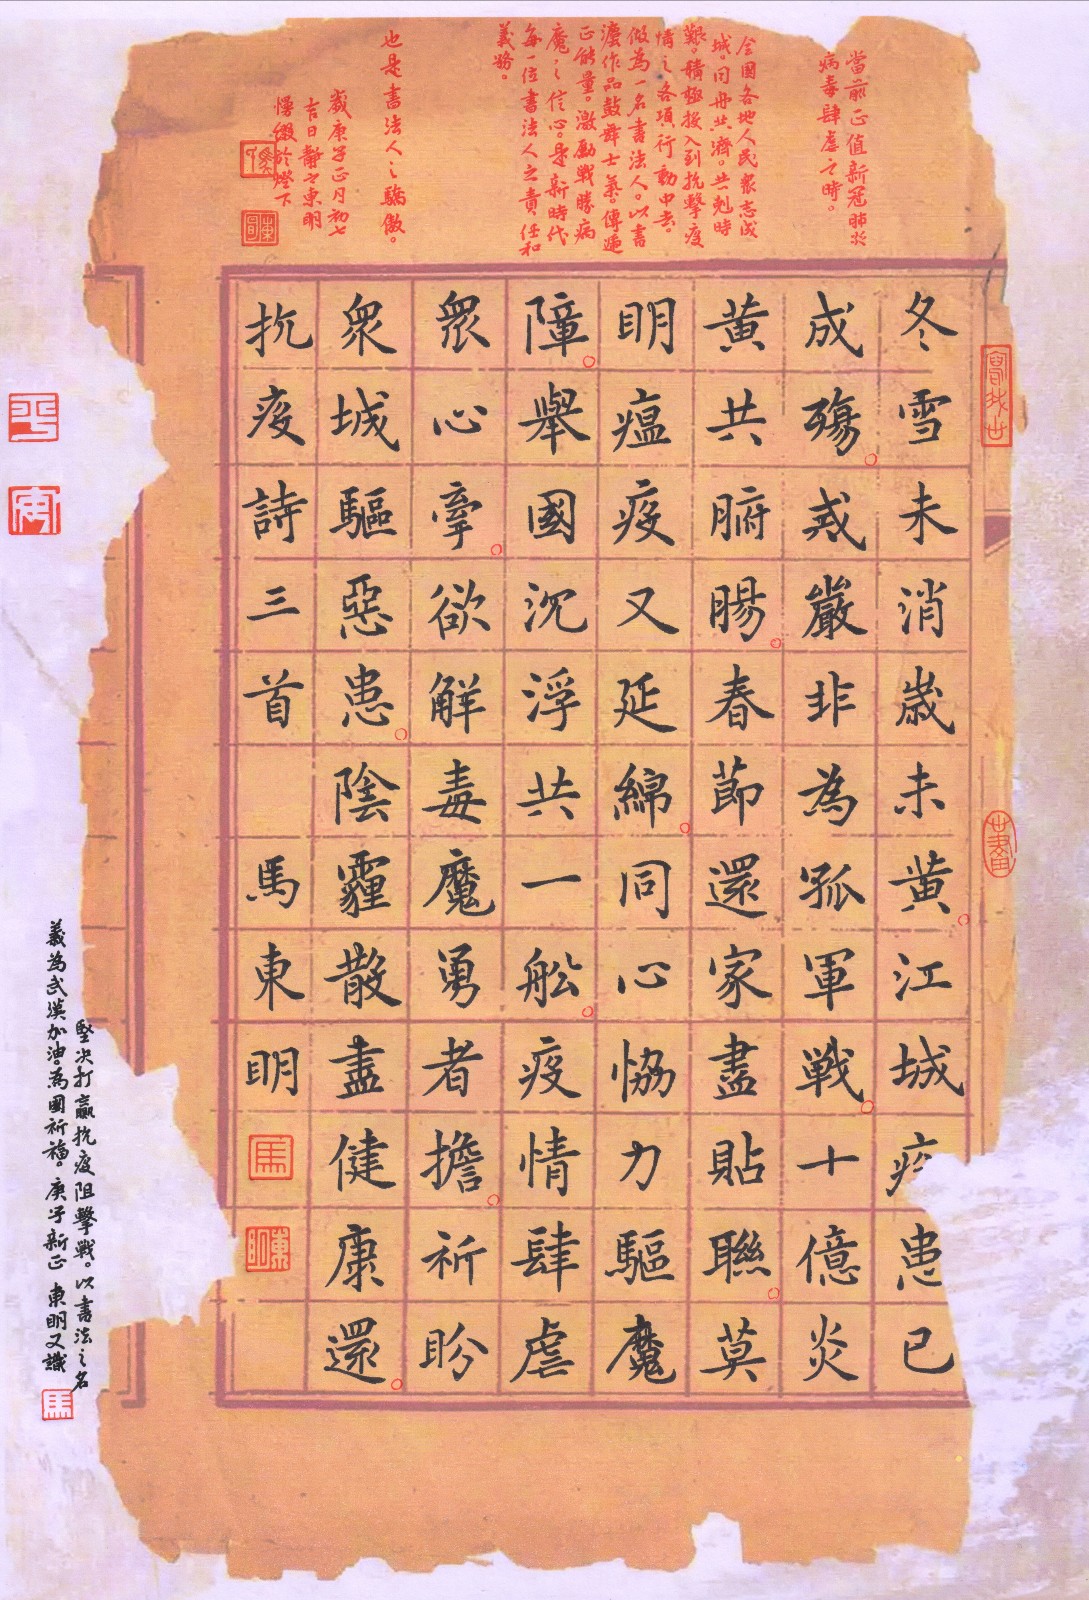 當前正值新冠肺炎
病毒肆虐之時。
全國各地人民衆志成
城。同舟共濟。共剋時
艱。積極投入到抗擊疫
情之各項行動中去。
做為一名書法人。以書
灋作品鼓舞士氣。傳遞
正能量。激勵戰勝病
魔之信心。是新時代
每一位書法人之責任和
義務。
也是書法人之驕傲。
歲庚子正月初七
吉日静之東明
於燈下
冬雪未消歲未黄。江城疫患已
成殤。戒嚴非為孤軍戰。十億炎
黄共腑腸。春節還家盡貼聯。莫
明瘟疫又延綿。同心恊力驅魔
障。舉國沉浮共一舩。疫情肆虐
衆心牽。欲解毒魔勇者擔。祈盼
衆城驅惡患。陰霾散盡健康還。
抗疫詩三首 馬東明
馬
東明
堅決打贏抗疫阻擊戰。以書法之名
義為武漢加油。為國祈福。庚子新正 東明又識
馬